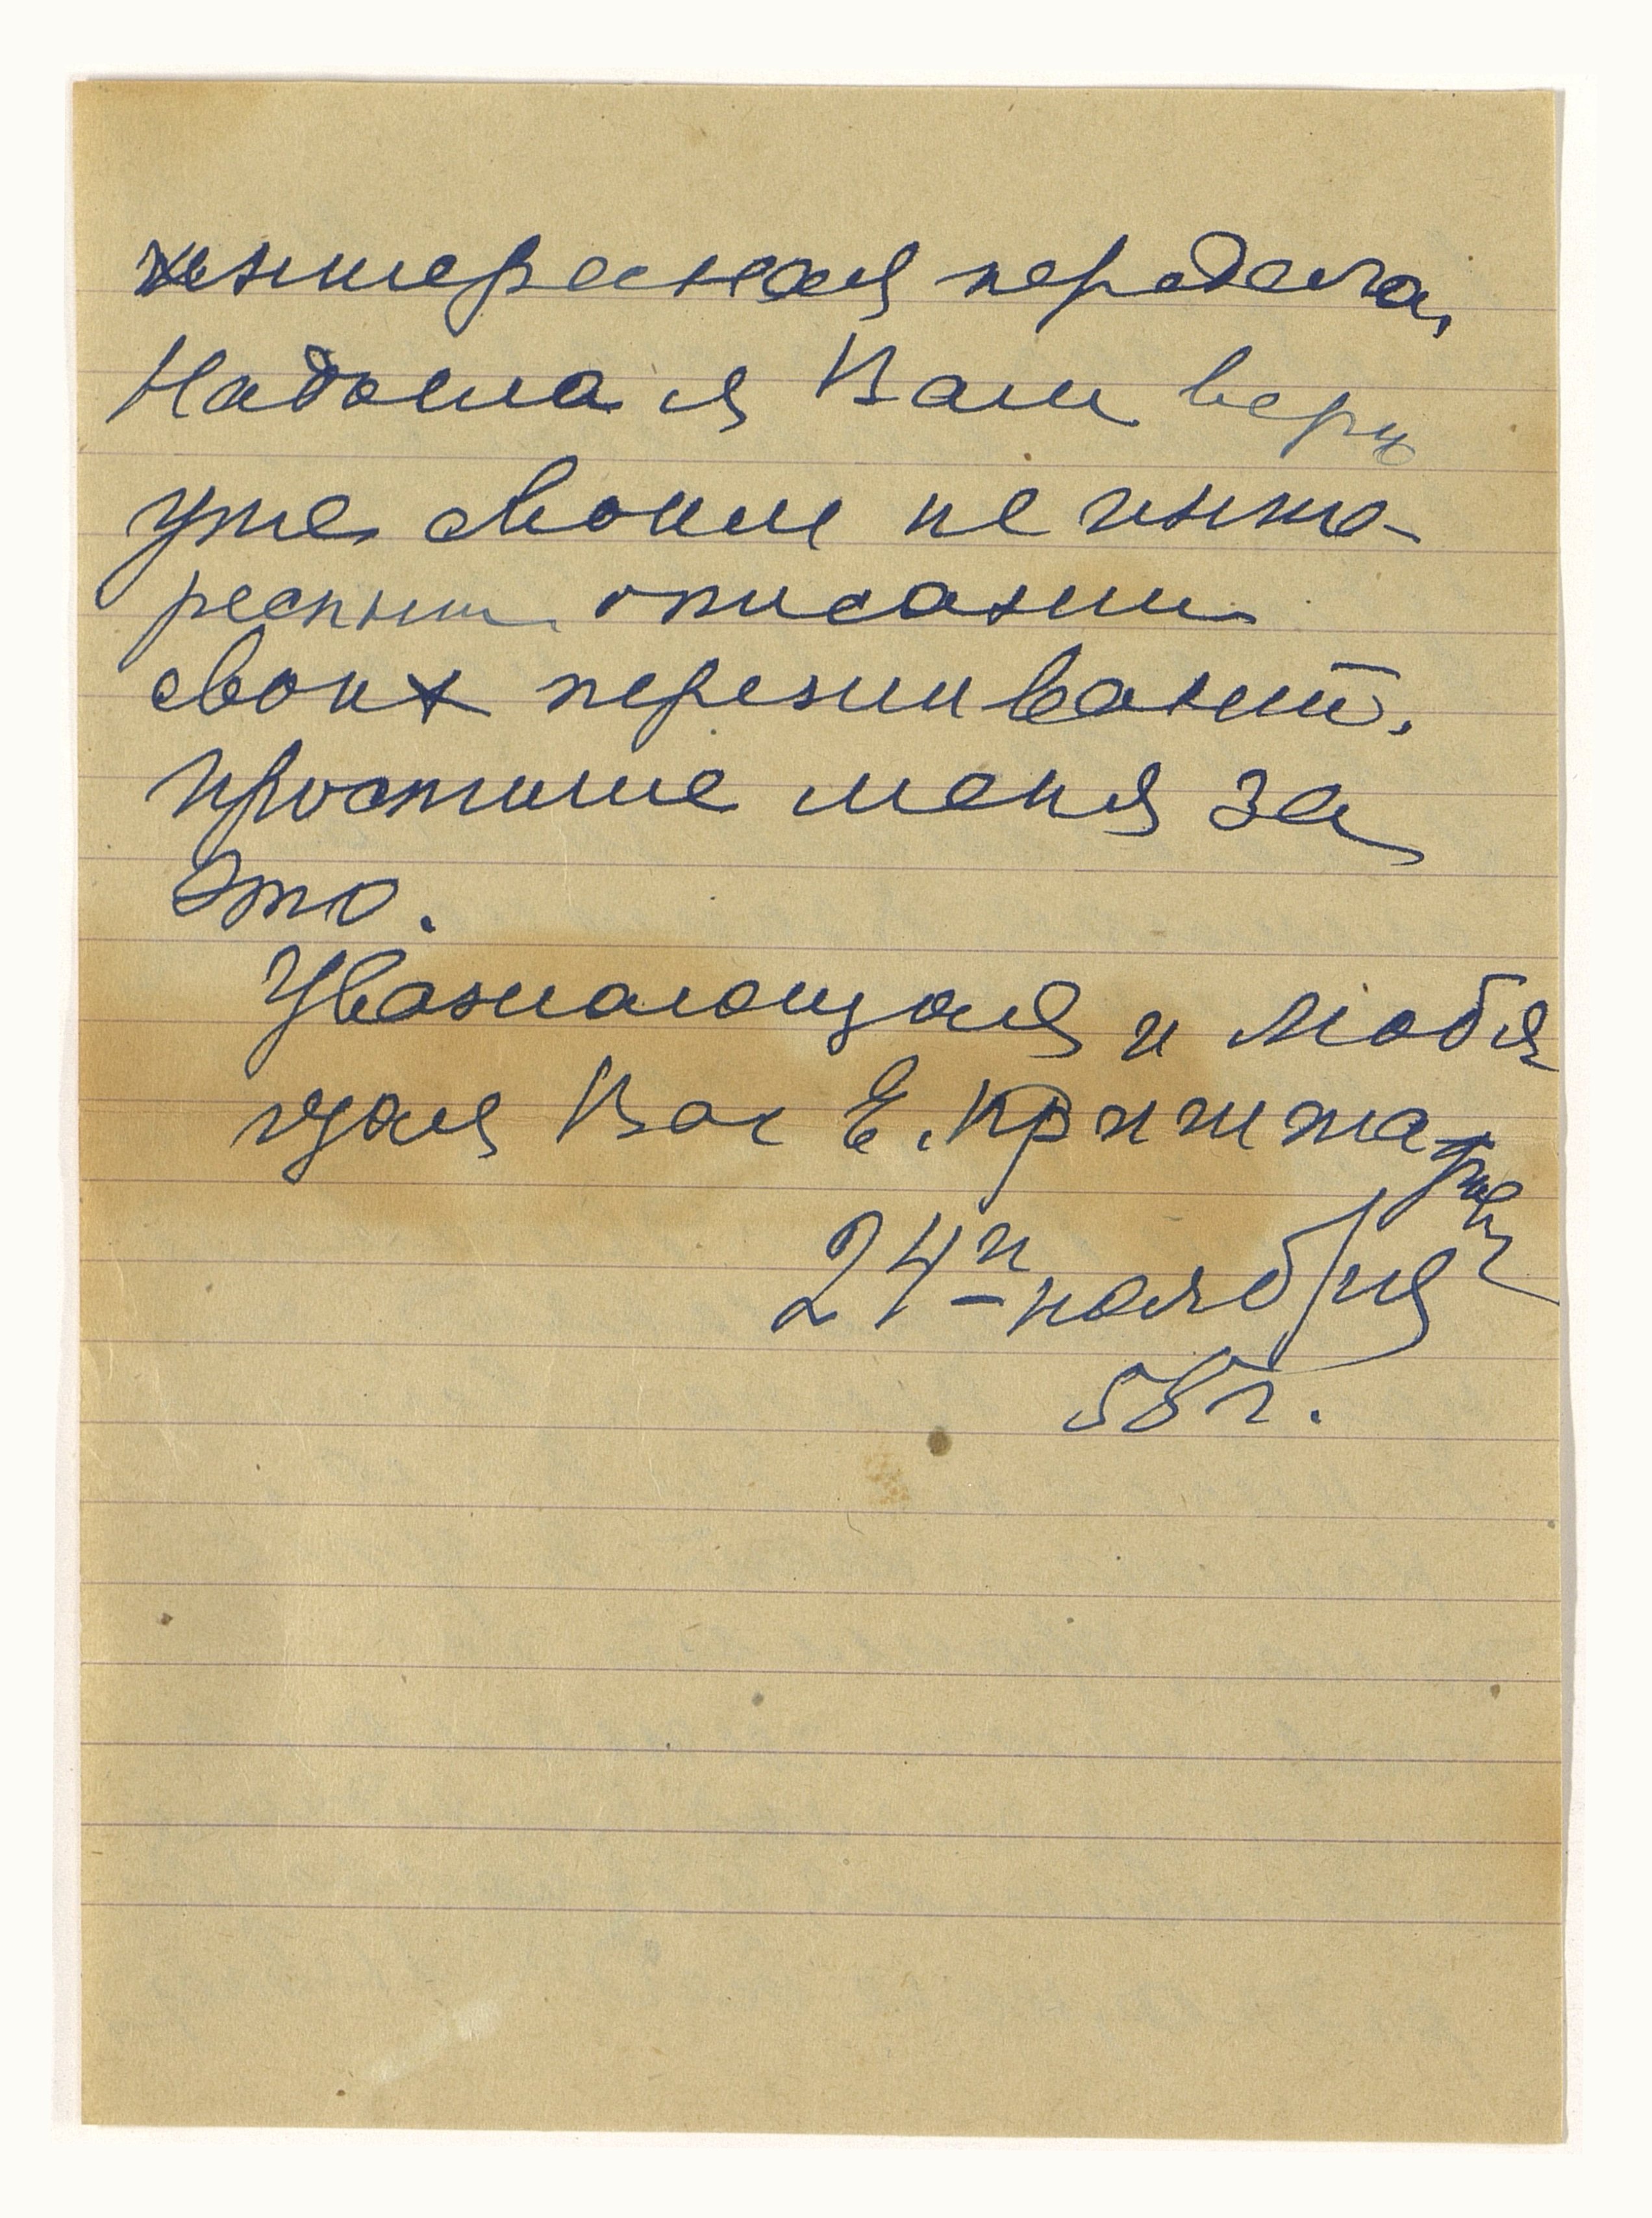 интересная передача,
Надоела я Вам верю
уже своим не инте-
ресным описании
своих переживаний.
простите меня за
это.
Уважающая и любя
щая Вас Е. Кришта
24го ноября
58 г.